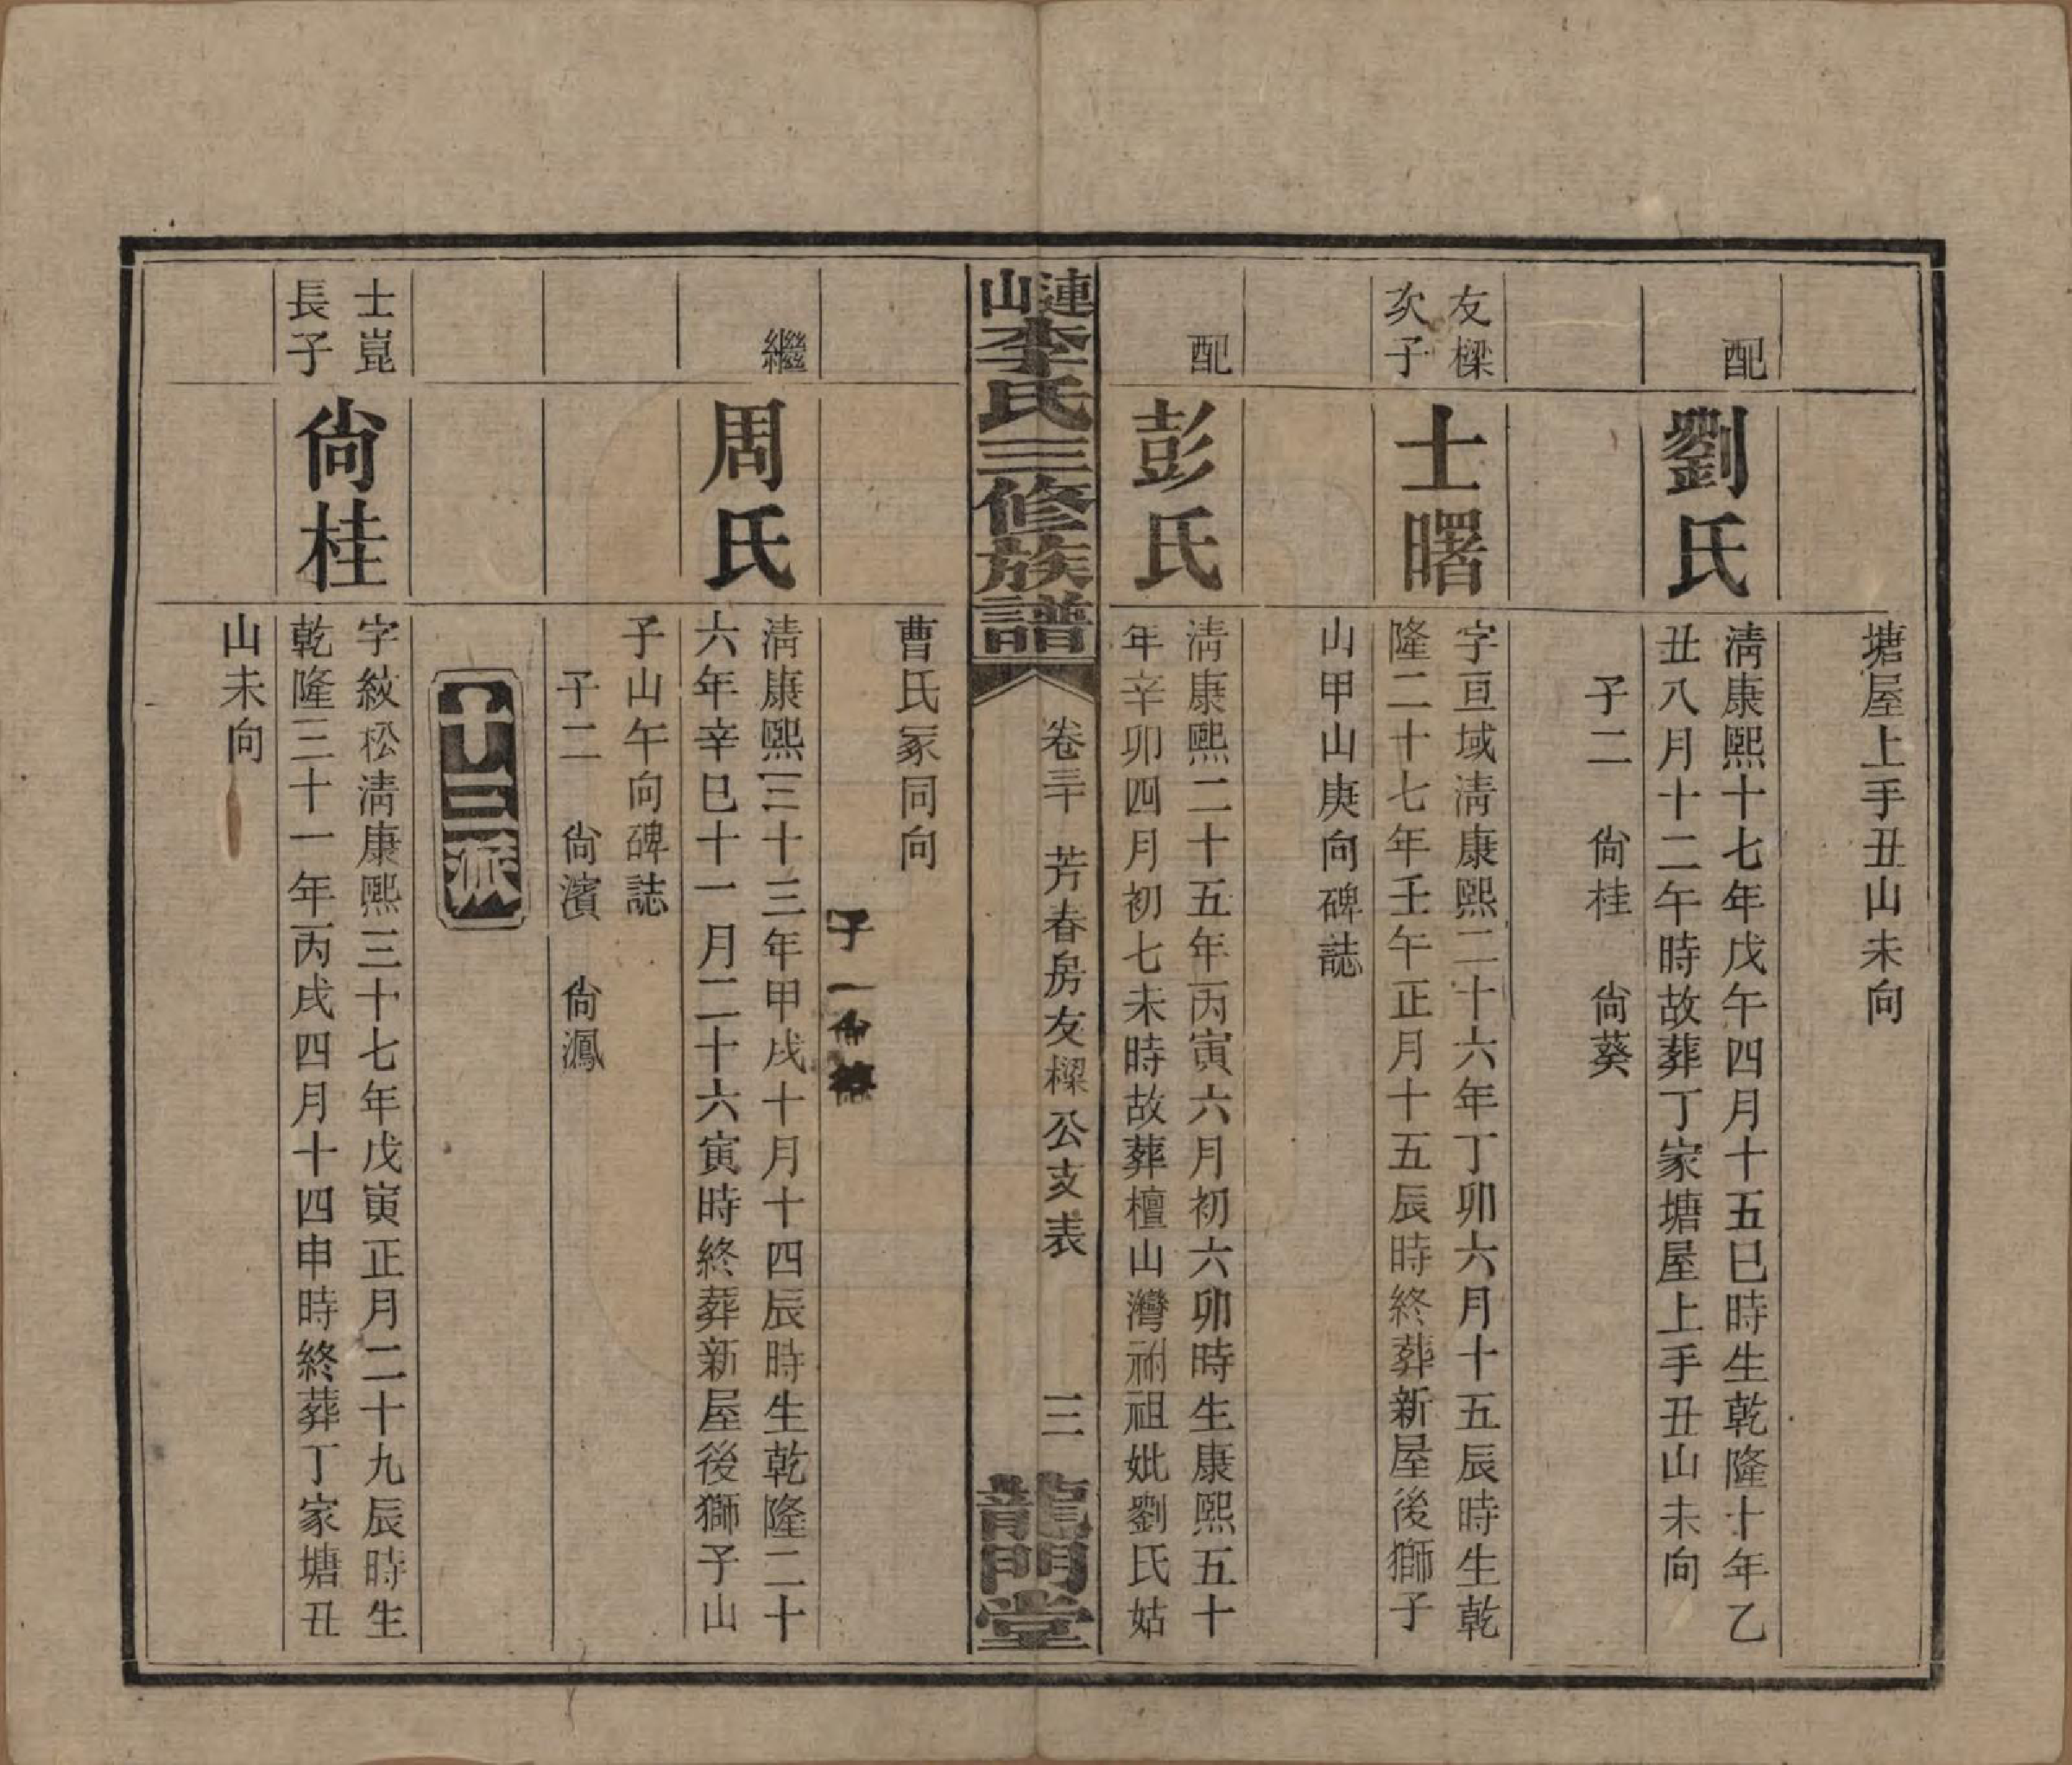 塘屋上手丑山未向
配
劉氏
淸康熙十七年戊午四月十五巳時生乾隆十年乙
丑八月十二午時故葬丁家塘屋上手丑山未向
子二　尙桂　尙葵
友樑
次子
士曙
字亘域淸康熙二十六年丁卯六月十五辰時生乾
隆二十七年壬午正月十五辰時終葬新屋後獅子
山甲山庚向碑誌
配
彭氏
淸康熙二十五年丙寅六月初六卯時生康熙五十
年辛卯四月初七未時故葬檀山灣祔祖妣劉氏姑
連山李氏三修族譜
卷三十　芳春房友樑公支表
三
龍門堂
曹氏冢同向
子一尙
繼
周氏
淸康熙三十三年甲戌十月十四辰時生乾隆二十
六年辛巳十一月二十六寅時終葬新屋後獅子山
子山午向碑誌
子二　尙濱　尙鳳
十三派
士崑
長子
尙桂
字紋松淸康熙三十七年戊寅正月二十九辰時生
乾隆三十一年丙戌四月十四申時終葬丁家塘丑
山未向